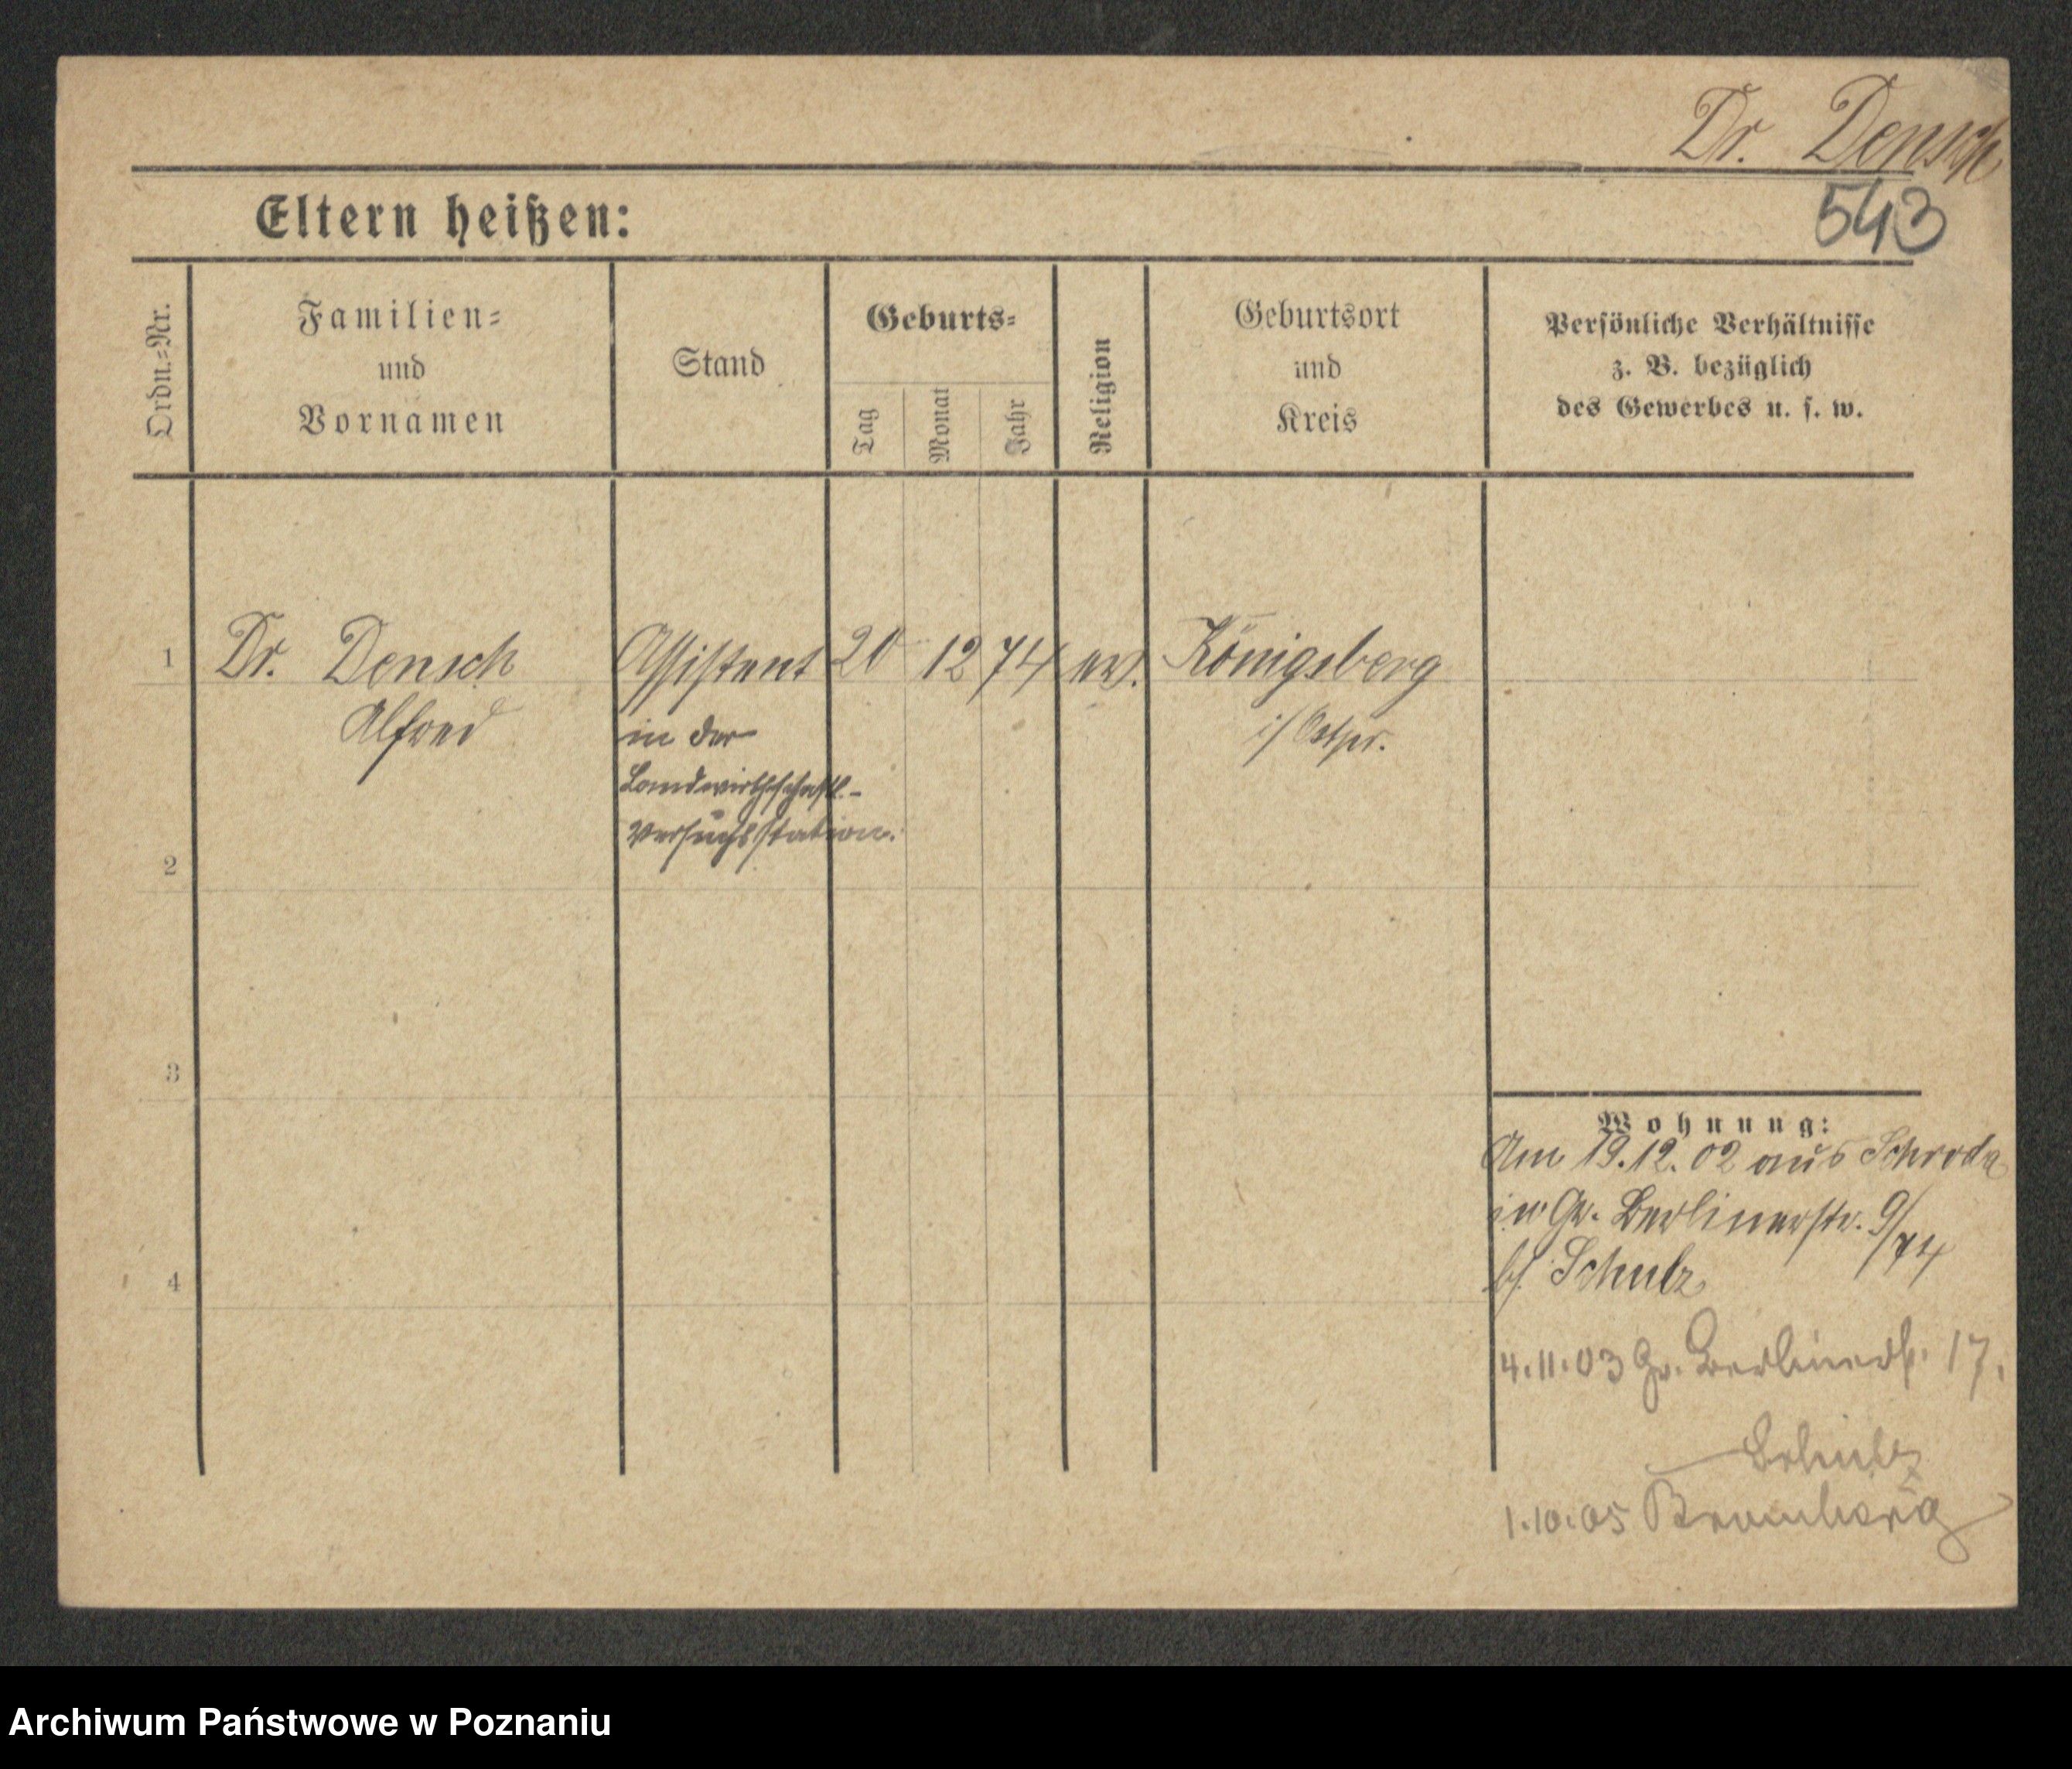 Dr. Densch
543
Eltern heißen:
Ordn.=Nr.
Familien=
und
Vornamen
Stand
Geburts=
Tag
Monat
Jahr
Religion
Geburtsort
und
Kreis
Persönliche Verhältnisse
z. B. bezüglich
des Gewerbes u. s. w.
1 Dr. Densch Assistent 20 12 74 ev. Königsberg
Alfred in der i/Ostpr.
Landwirthschaftl.-
Versuchsstation.
2
3
Wohnung:
Am 19.12.02 aus Schroda
in Gr. Berlinerstr. 9/74
4
bf. Schulz
4.11.03 Gr. Berlinerst. 17.
Schulz
1.10.05 Bromberg
Archiwum Państwowe w Poznaniu